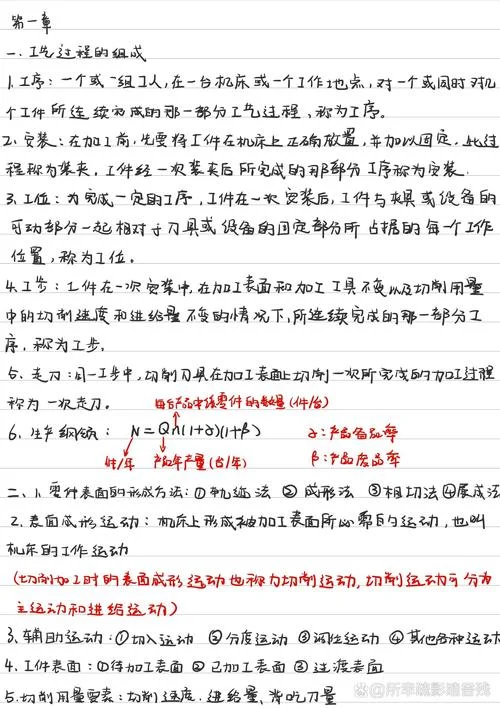 第一章
一、工艺过程的组成
1.工序:一个或一组工人,在一台机床或一个工作地点,对一个或同时对几
个工件所连续完成的那一部分工艺过程,称为工序。
2.安装:在加工前,先要将工件在机床上正确放置,并加以固定,此过
程称为装夹,工件经一次装夹后所完成的那部分工序称为安装.
3.工位:为完成一定的工序,工件在一次安装后,工件与夹具或设备的
可动部分一起相对于刀具或设备的固定部分所占据的每一个工作
位置,称为工位。
4.工步:工件在一次安装中,在加工表面和加工工具不变以及切削用量
中的切削速度和进给量不变的情况下,所连续完成的那一部分工
序,称为工步.
5.走刀:同一工步中,切削刀具在加工表面上切削一次所完成的加工过程
称为一次走刀。
每台产品中该零件的数量(件/台)
6.生产纲领: N=Qn(1+α)(1+β) α:产品备品率
件/年 产品年产量(台/年) β:产品废品率
二、1.零件表面的形成方法:①轨迹法 ②成形法 ③相切法④展成法
2.表面成形运动:机床上形成被加工表面所必需的运动,也叫
机床的工作运动
(切削加工时的表面成形运动也称为切削运动,切削运动可分为
主运动和进给运动)
3.辅助运动:①切入运动 ②分度运动 ③调位运动 ④其他各种运动
4.工件表面:①待加工表面 ②已加工表面 ③过渡表面
5.切削用量要素:切削速度.进给量,背吃刀量
@所幸疏影遮昏残